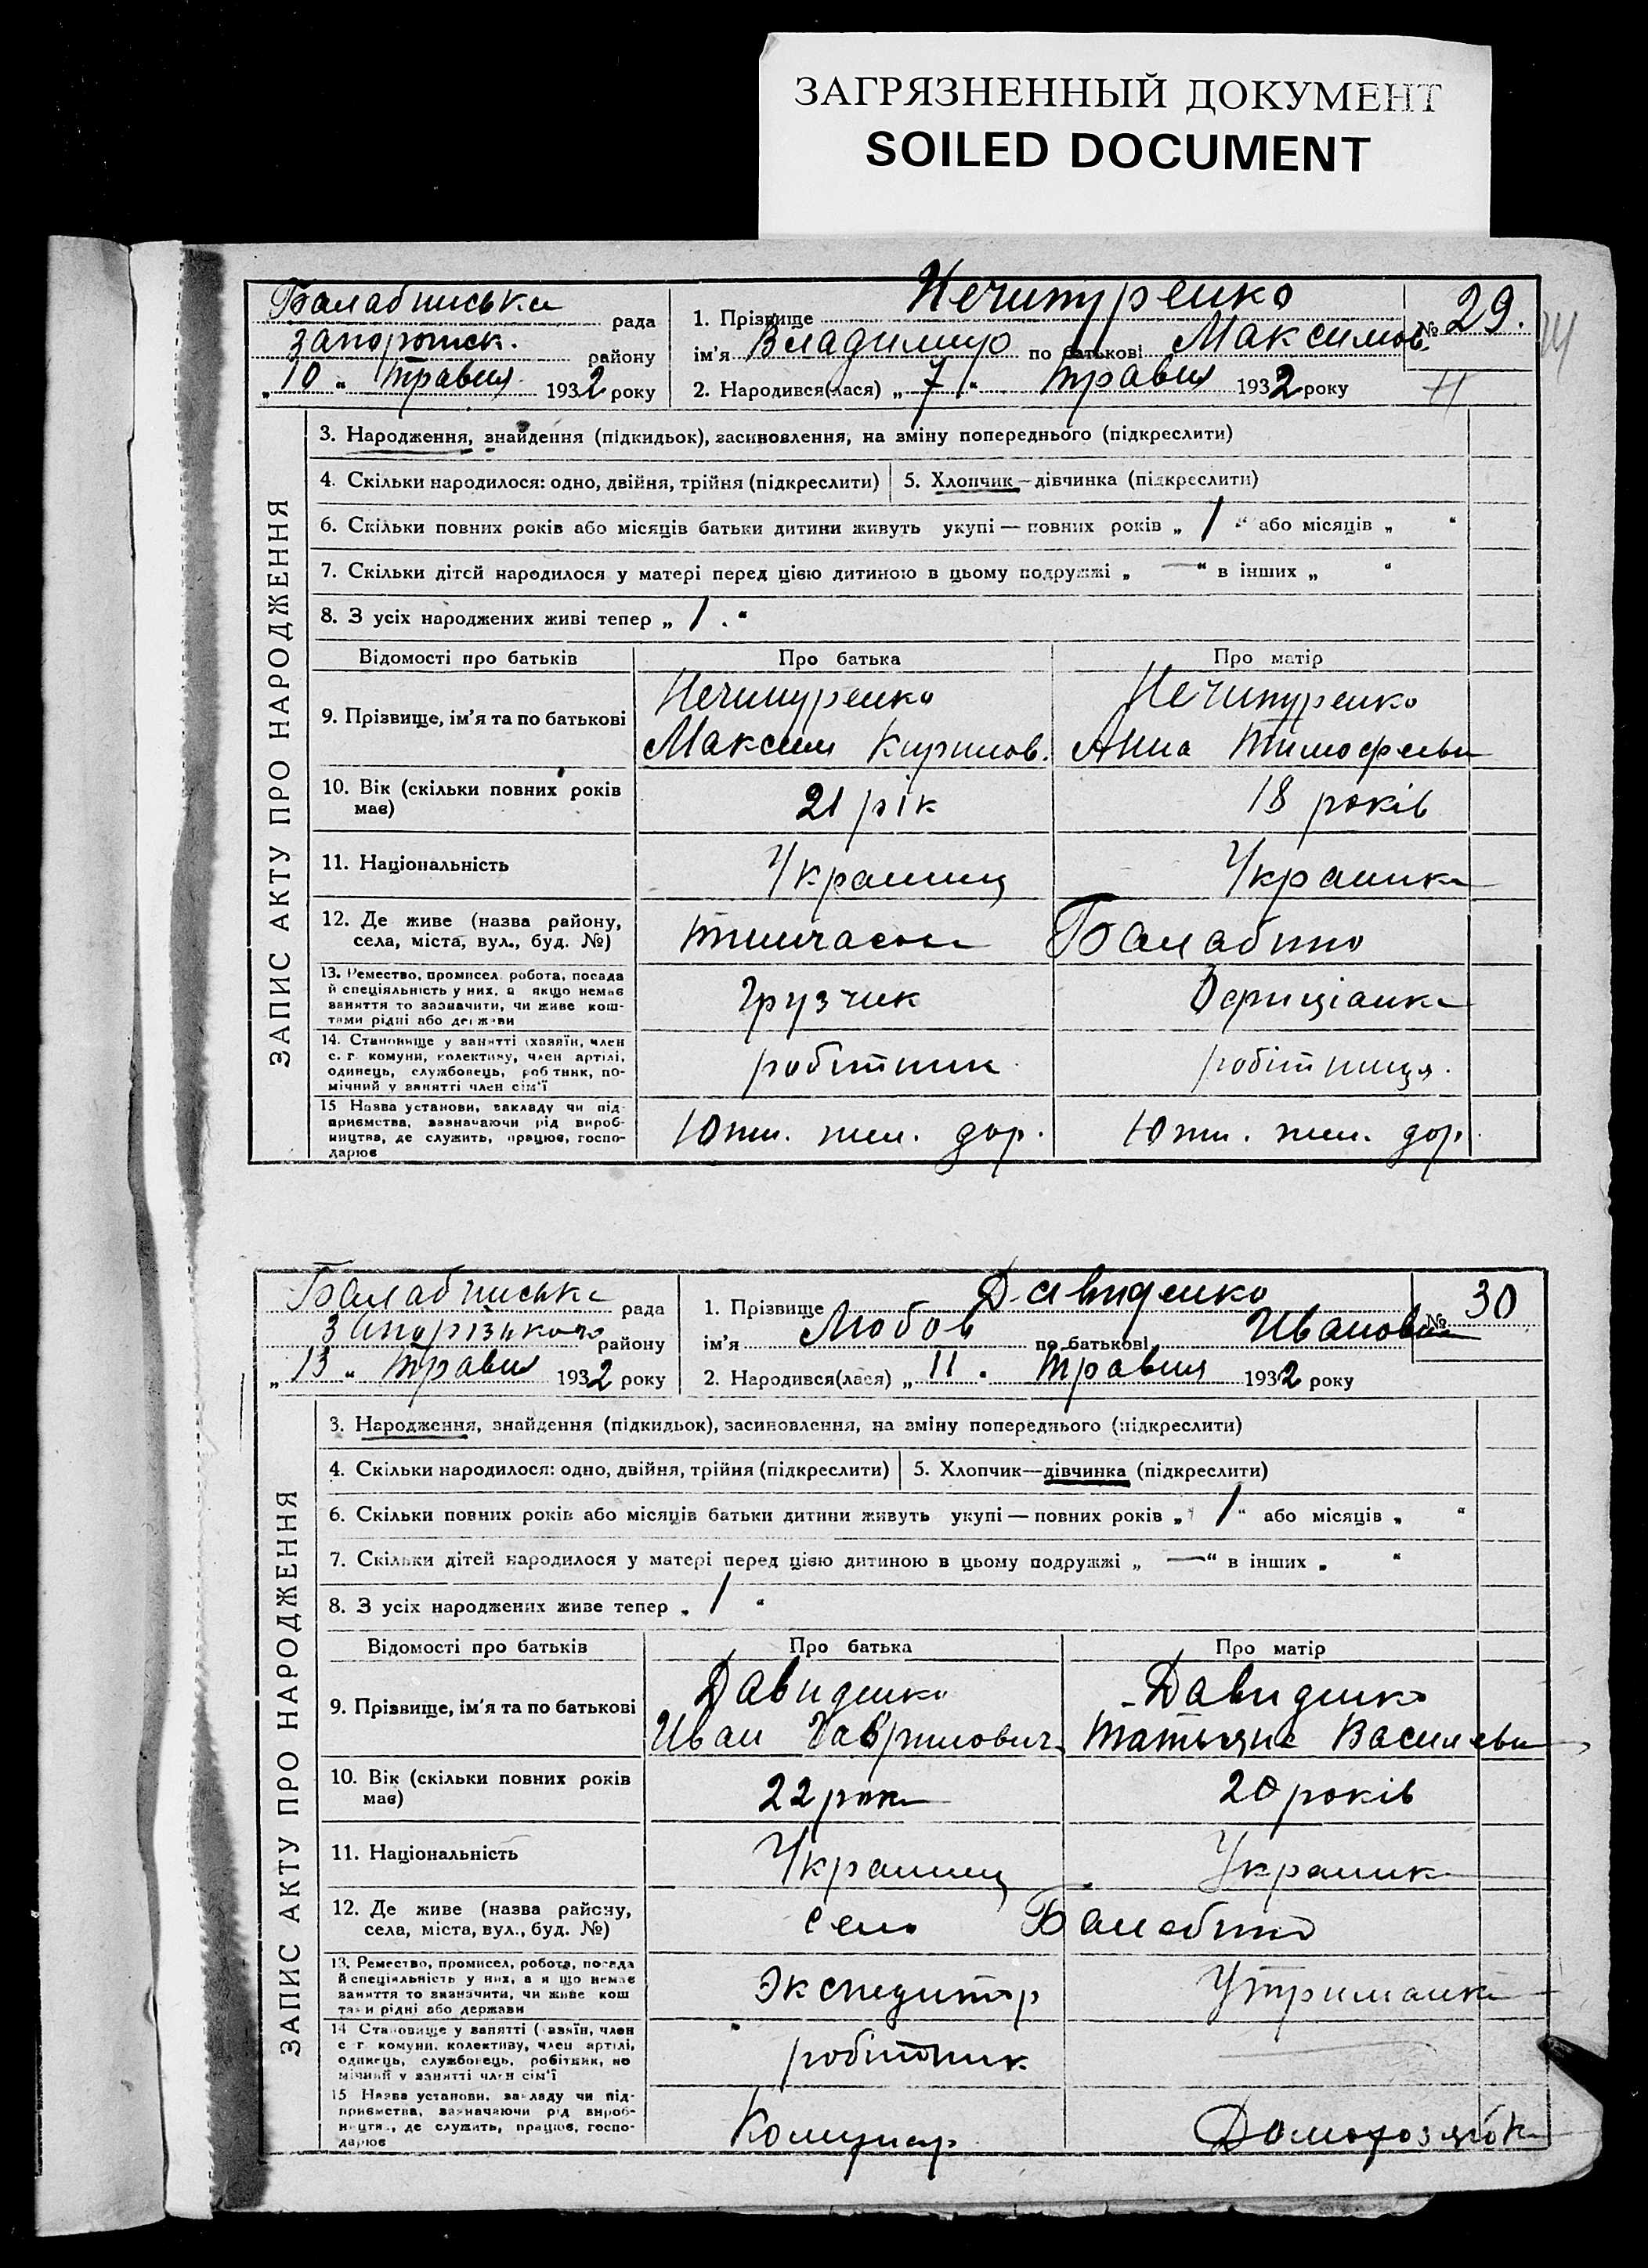 ЗАГРЯЗНЕННЫЙ ДОКУМЕНТ
SOILED DOCUMENT
Балабинська рада
Запорожск. району
„ 10 " травня 1932 року
1. Прізвище Нечипуренко
ім'я Владимир по батькові Максимов.
2. Народився(лася) „ 7 " травня 1932 року
№ 29.
ЗАПИС АКТУ ПРО НАРОДЖЕННЯ
3. Народження, знайдення (підкидьок), засиновлення, на зміну попереднього (підкреслити)
4. Скільки народилося: одно, двійня, трійня (підкреслити) 5. Хлопчик—дівчинка (підкреслити)
6. Скільки повних років або місяців батьки дитини живуть укупі — повних років „ 1 " або місяців „ "
7. Скільки дітей народилося у матері перед цією дитиною в цьому подружжі „ — " в інших „ "
8. З усіх народжених живі тепер „ 1 . "
Відомості про батьків Про батька Про матір
9. Прізвище, ім'я та по батькові
Нечипуренко
Максим Кирилов.
Нечипуренко
Анна Тимофеевн
10. Вік (скільки повних років
має)
21 рік
18 років
11. Національність
Українец
Українка
12. Де живе (назва району,
села, міста, вул., буд. №)
тимчасово Балабино
13. Ремество, промисел, робота, посада
й спеціяльність у них, а якщо немає
заняття то зазначити, чи живе кош-
тами рідні або держави
Грузчик
Офиціантка
14. Становище у занятті (хазяїн, член
с. г. комуни, колективу, член артілі,
одинець, службовець, робітник, по-
мічний у занятті член сім'ї
робітник
робітниця.
15 Назва установи, закладу чи під-
приємства, зазначаючи рід вироб-
ництва, де служить, працює, госпо-
дарює
Южн. жел. дор.
Южн. жел. дор.
Балабинська рада
Запорізького району
„ 13 " травн 1932 року
1. Прізвище Давиденко
ім'я Любов по батькові Ивановна
2. Народився(лася) „ 11 . травня 1932 року
№ 30
ЗАПИС АКТУ ПРО НАРОДЖЕННЯ
3. Народження, знайдення (підкидьок), засиновлення, на зміну попереднього (підкреслити)
4. Скільки народилося: одно, двійня, трійня (підкреслити) 5. Хлопчик—дівчинка (підкреслити)
6. Скільки повних років або місяців батьки дитини живуть укупі — повних років „ 1 " або місяців „ "
7. Скільки дітей народилося у матері перед цією дитиною в цьому подружжі „ — " в інших „ "
8. З усіх народжених живе тепер „ 1 "
Відомості про батьків Про батька Про матір
9. Прізвище, ім'я та по батькові
Давиденко
Иван Гаврилович
Давиденко
Татьяна Василевн
10. Вік (скільки повних років
має)
22 роки
20 років
11. Національність
Українец
Українка
12. Де живе (назва району,
села, міста, вул., буд. №)
село Балабино
13. Ремество, промисел, робота, посада
й спеціяльність у них, а якщо немає
заняття то зазначити, чи живе кош
тами рідні або держави
Экспедитор
Утриманка
14 Становище у занятті (хазяїн, член
с г. комуни, колективу, член артілі,
одинець, службовець, робітник, по
мічний у занятті член сім'ї
робітник
15 Назва установи, закладу чи під-
приємства, зазначаючи рід вироб-
ництва, де служить, працює, госпо-
дарює
Комунар
Домохозяйка